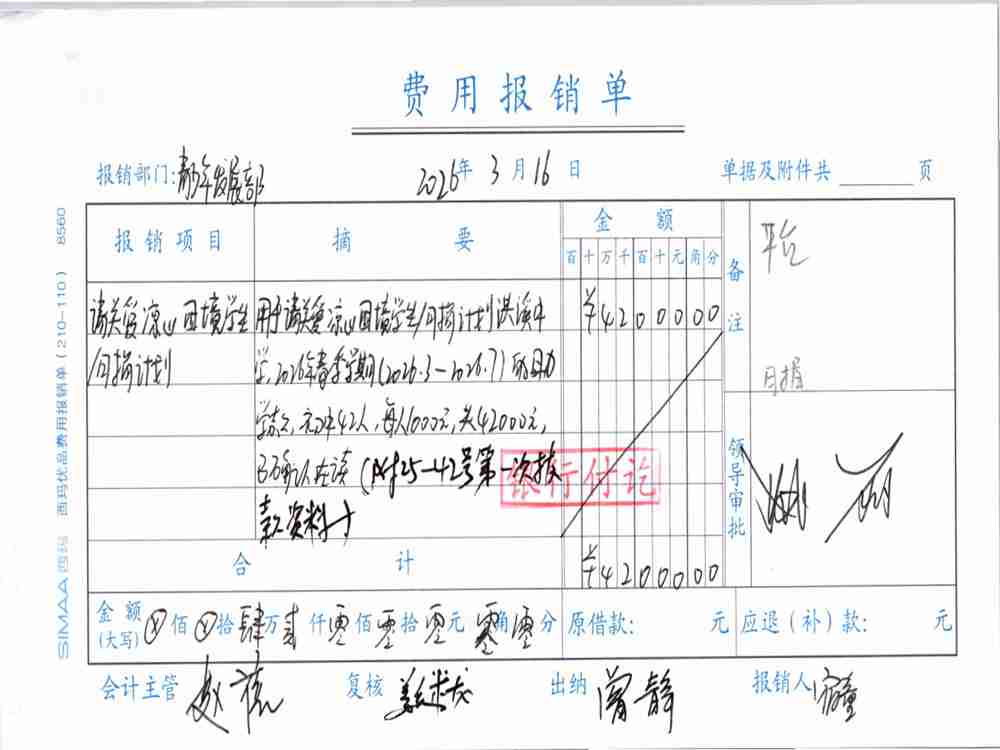 费用报销单
报销部门:青少年发展部 2026年3月16日 单据及附件共 页
报销项目 摘要 金额 备注
百十万千百十元角分
平台
请关爱凉山困境学生 用于请关爱凉山困境学生/月捐计划洪溪中 ¥4200000
/月捐计划 学,2026年春季学期(2026.3-2026.7)的助
月捐
学款,元/年42人,每人1000元,共42000元,
已确认在读(附25-42号第一次拨
银行付讫
款资料)
领导审批
合计 ¥4200000
金额(大写) ⊗佰⊗拾肆万贰仟零佰零拾零元零角零分 原借款: 元 应退(补)款: 元
会计主管 复核 出纳 曾静 报销人
SIMAA 西玛 西玛优品费用报销单(210-110) 8560